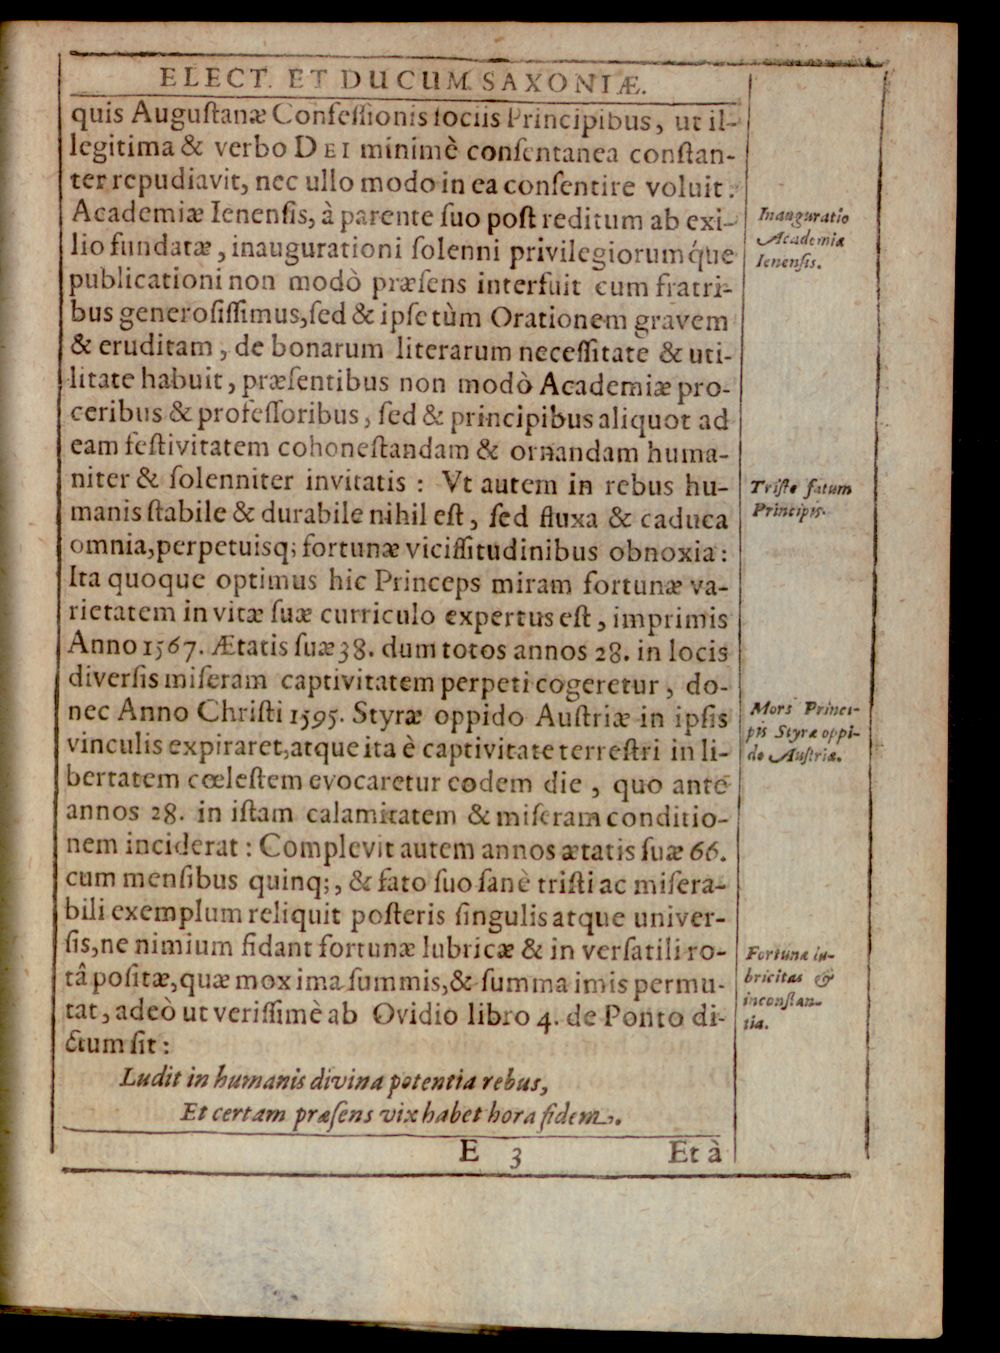 ELECT. ET DUCUM SAXONIÆ.
quis Auguſtanæ Confeſſionis ſociis Principibus, ut il-
legitima & verbo DEI minimè conſentanea conſtan-
ter repudiavit, nec ullo modo in ea conſentire voluit.
Academiæ Ienenſis, à parente ſuo poſt reditum ab exi-
lio fundatæ, inaugurationi ſolenni privilegiorumq́ue
publicationi non modò præſens interfuit cum fratri-
bus generoſiſſimus, ſed & ipſe tùm Orationem gravem
& eruditam, de bonarum literarum neceſſitate & uti-
litate habuit, præſentibus non modò Academiæ pro-
ceribus & profeſſoribus, ſed & principibus aliquot ad
eam feſtivitatem cohoneſtandam & ornandam huma-
niter & ſolenniter invitatis: Vt autem in rebus hu-
manis ſtabile & durabile nihil eſt, ſed fluxa & caduca
omnia, perpetuisq; fortunæ viciſſitudinibus obnoxia:
Ita quoque optimus hic Princeps miram fortunæ va-
rietatem in vitæ ſuæ curriculo expertus eſt, imprimis
Anno 1567. Ætatis ſuæ 38. dum totos annos 28. in locis
diverſis miſeram captivitatem perpeti cogeretur, do-
nec Anno Chriſti 1595. Styræ oppido Auſtriæ in ipſis
vinculis expiraret, atque ita è captivitate terreſtri in li-
bertatem cœleſtem evocaretur eodem die, quo ante
annos 28. in iſtam calamitatem & miſeram conditio-
nem inciderat: Complevit autem annos ætatis ſuæ 66.
cum menſibus quinq;, & fato ſuo ſanè triſti ac miſera-
bili exemplum reliquit poſteris ſingulis atque univer-
ſis, ne nimium fidant fortunæ lubricæ & in verſatili ro-
tâ poſitæ, quæ mox ima ſummis, & ſumma imis permu-
tat, adeò ut veriſſimè ab Ovidio libro 4. de Ponto di-
ctum ſit:
Ludit in humanis divina potentia rebus,
Et certam præſens vix habet hora fidem.
E 3
Et à
Inauguratio
Academiæ
Ienenſis.
Triſte fatum
Principis.
Mors Princi-
pis Styræ oppi-
do Auſtriæ.
Fortunæ lu-
bricitas &
inconſtan-
tia.